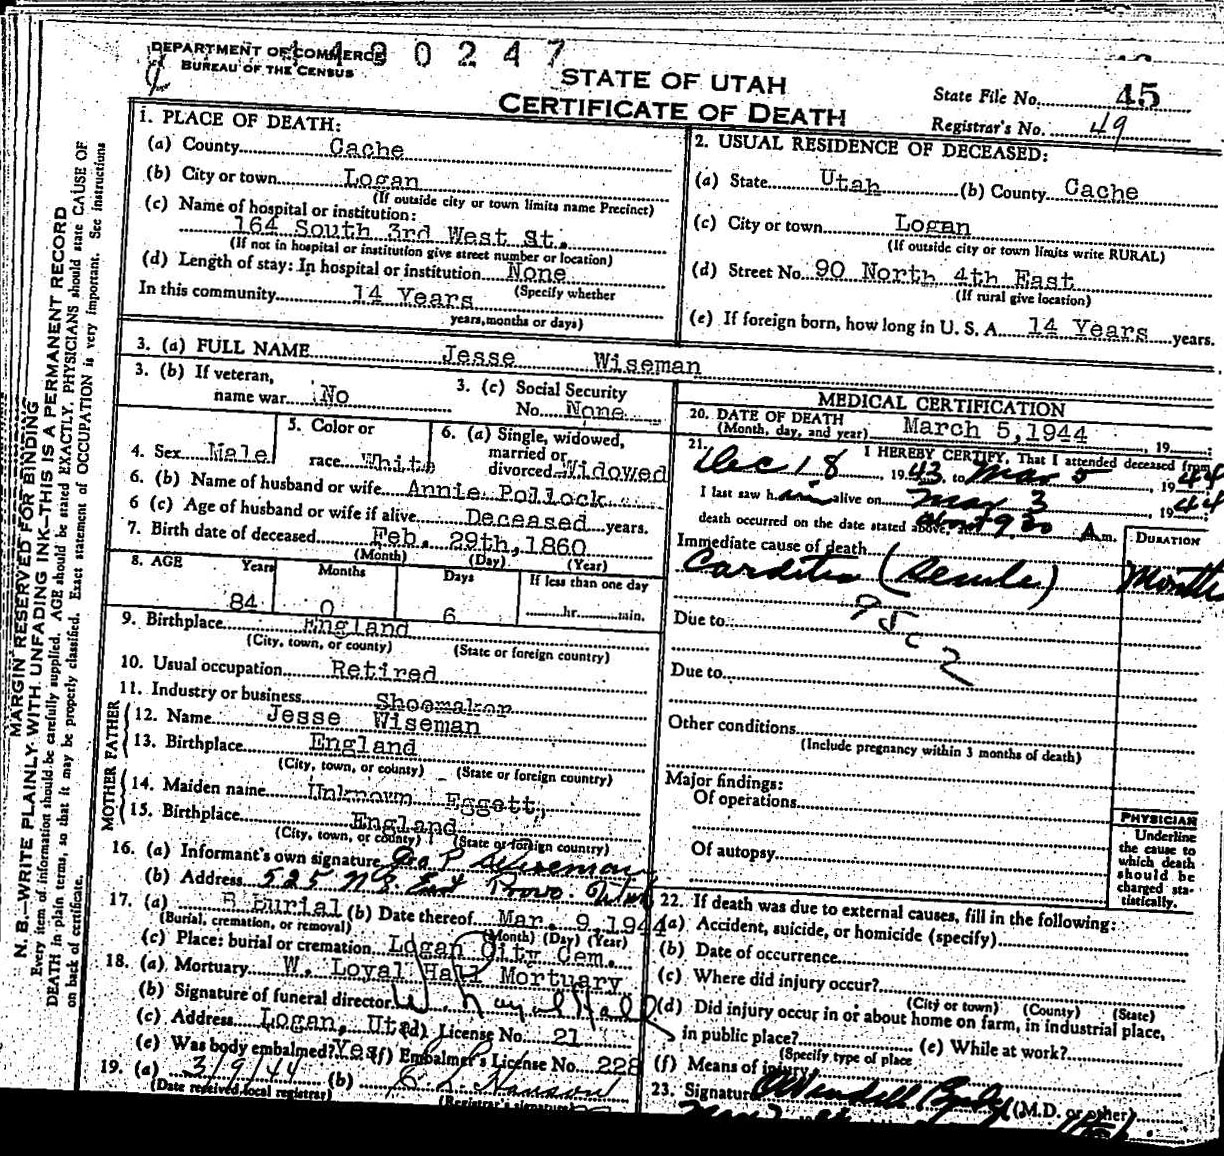 DEPARTMENT OF COMMERCE
BUREAU OF THE CENSUS
0 2 4 7
STATE OF UTAH
CERTIFICATE OF DEATH
State File No. 45
Registrar's No. 49
MARGIN RESERVED FOR BINDING
N. B.—WRITE PLAINLY WITH UNFADING INK—THIS IS A PERMANENT RECORD
Every item of information should be carefully supplied. AGE should be stated EXACTLY. PHYSICIANS should state CAUSE OF
DEATH in plain terms, so that it may be properly classified. Exact statement of OCCUPATION is very important. See instructions
on back of certificate.
1. PLACE OF DEATH:
(a) County Cache
(b) City or town Logan
(If outside city or town limits name Precinct)
(c) Name of hospital or institution:
164 South 3rd West St.
(If not in hospital or institution give street number or location)
(d) Length of stay: In hospital or institution None
In this community 14 Years (Specify whether
years, months or days)
2. USUAL RESIDENCE OF DECEASED:
(a) State Utah (b) County Cache
(c) City or town Logan
(If outside city or town limits write RURAL)
(d) Street No. 90 North 4th East
(If rural give location)
(e) If foreign born, how long in U. S. A. 14 Years years.
3. (a) FULL NAME Jesse Wiseman
3. (b) If veteran,
name war No
3. (c) Social Security
No. None
4. Sex Male
5. Color or
race White
6. (a) Single, widowed,
married or
divorced Widowed
6. (b) Name of husband or wife Annie Pollock
6 (c) Age of husband or wife if alive Deceased years.
7. Birth date of deceased Feb. 29th, 1860
(Month) (Day) (Year)
8. AGE Years Months Days If less than one day
84 0 6 hr. min.
9. Birthplace England
(City, town, or county) (State or foreign country)
10. Usual occupation Retired
11. Industry or business Shoemaker
FATHER
12. Name Jesse Wiseman
13. Birthplace England
(City, town, or county) (State or foreign country)
MOTHER
14. Maiden name Unknown Eggett,
15. Birthplace England
(City, town, or county) (State or foreign country)
16. (a) Informant's own signature Geo P Wiseman
(b) Address 525 N East Provo. Utah
17. (a) B Burial (b) Date thereof Mar. 9, 1944
(Burial, cremation, or removal) (Month) (Day) (Year)
(c) Place: burial or cremation Logan City Cem.
18. (a) Mortuary W. Loyal Hall Mortuary
(b) Signature of funeral director W. Loyal Hall
(c) Address Logan, Utah (d) License No. 21
(e) Was body embalmed? Yes (f) Embalmer's License No. 228
19. (a) 3/9/44 (b) Hanson
(Date received local registrar) (Registrar's signature)
MEDICAL CERTIFICATION
20. DATE OF DEATH
(Month, day, and year) March 5, 1944 19
21. I HEREBY CERTIFY, That I attended deceased from
Dec 18, 1943, to Mar 5, 1944
I last saw him alive on Mar 3, 1944
death occurred on the date stated above, at about 9:30 A m.
DURATION
Immediate cause of death
Carditis (Senile) Months
Due to
95c2
Due to
Other conditions
(Include pregnancy within 3 months of death)
Major findings:
Of operations
Of autopsy
PHYSICIAN
Underline
the cause to
which death
should be
charged sta-
tistically.
22. If death was due to external causes, fill in the following:
(a) Accident, suicide, or homicide (specify)
(b) Date of occurrence
(c) Where did injury occur?
(City or town) (County) (State)
(d) Did injury occur in or about home on farm, in industrial place,
in public place? (e) While at work?
(Specify type of place
(f) Means of injury
23. Signature (M.D. or other)